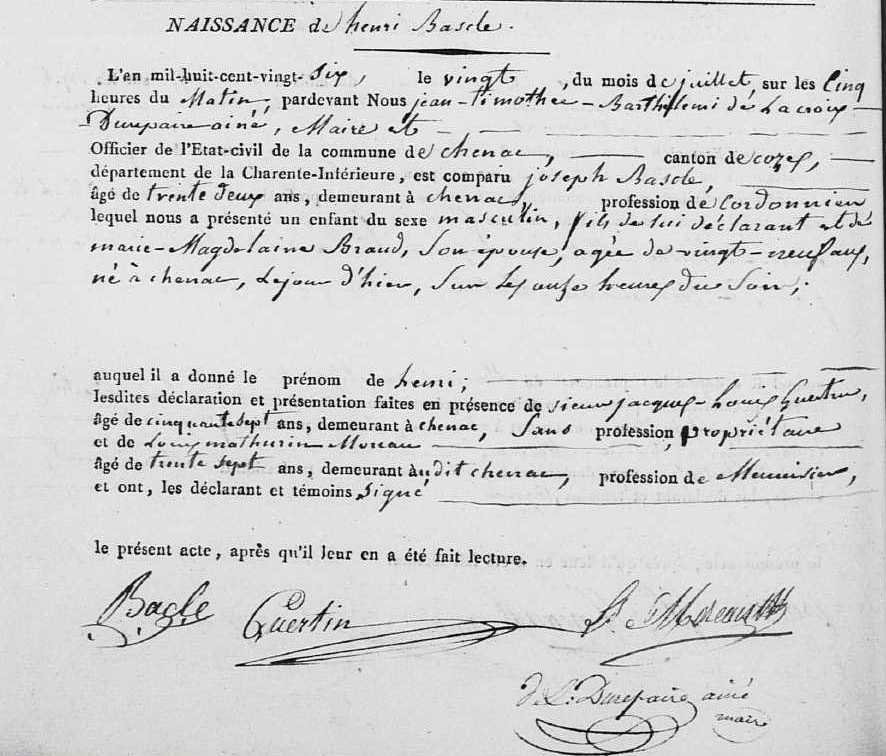 NAISSANCE de henri Bascle.
L'an mil-huit-cent-vingt-Six, le vingt, du mois de juillet, sur les Cinq
heures du Matin, pardevant Nous jean-timothee-Barthélemi de Lacroix-
Durepaire ainé, Maire et
Officier de l'Etat-civil de la commune de chenac, canton de cozes,
département de la Charente-Inférieure, est comparu joseph Bascle,
âgé de trente deux ans, demeurant à chenac, profession de Cordonnier
lequel nous a présenté un enfant du sexe masculin, fils de lui déclarant et de
marie-Magdelaine Braud, Son épouse, agée de vingt-neuf ans,
né à chenac, Le jour d'hier, Sur les onze heures du Soir;
auquel il a donné le prénom de henri;
lesdites déclaration et présentation faites en présence de sieur jacques-Louis Guertin,
âgé de cinquante sept ans, demeurant à chenac, Sans profession, propriétaire
et de Louis mathurin Moreau
âgé de trente sept ans, demeurant audit chenac, profession de Menuisier,
et ont, les déclarant et témoins, Signé
le présent acte, après qu'il leur en a été fait lecture.
Bacle Guertin Moreau
Durepaire ainé
maire